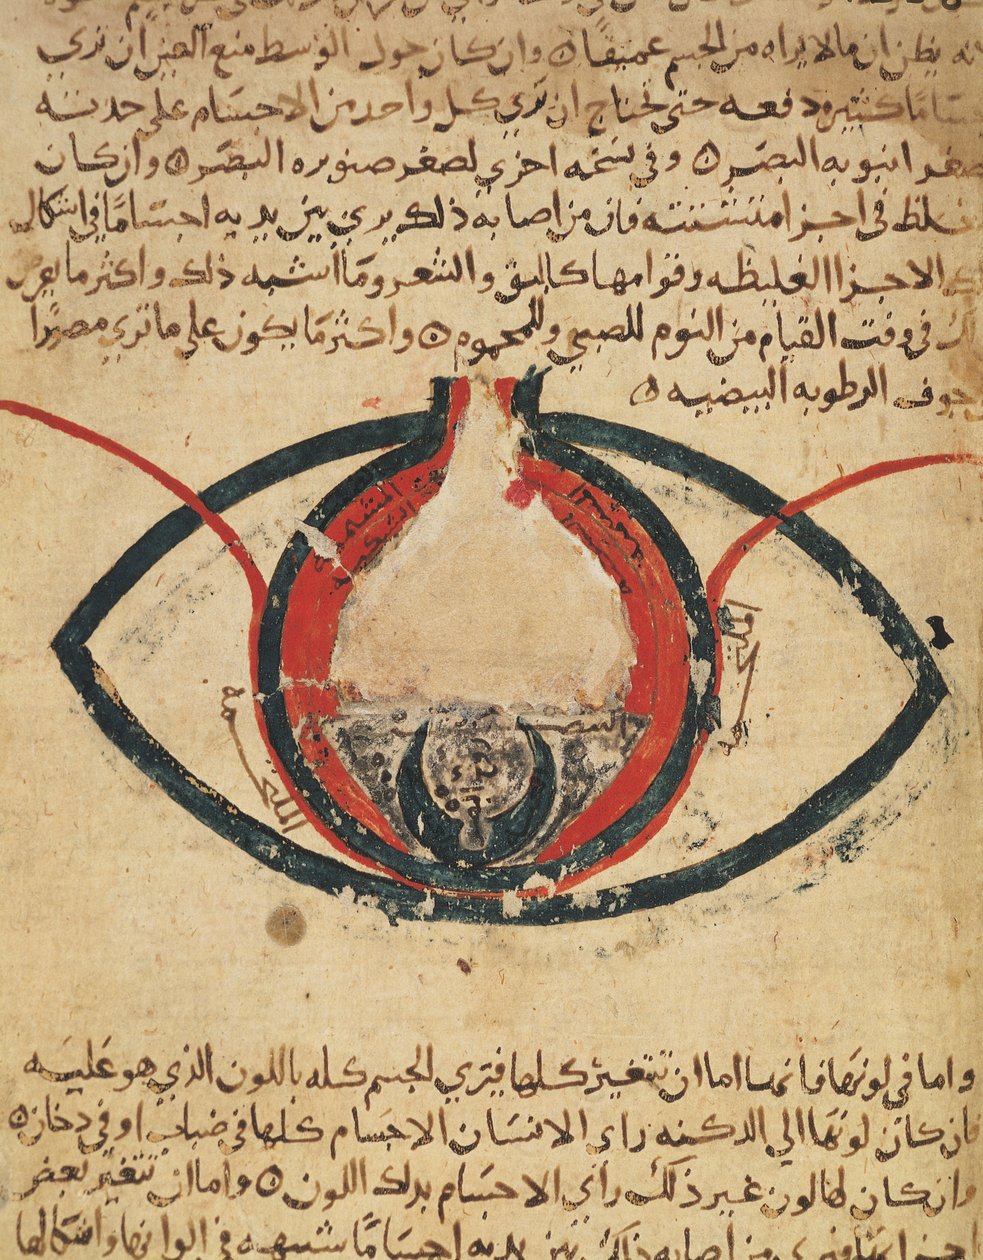 انه يظن ان ما لا يراه من الجسم عميقا ه وان كان حول الوسط منع العين ان تري
اجساما كثيره دفعه حتي تحتاج ان تري كل واحد من الاجسام علي حدته
لصغر انبوبه البصر ه وفي نسخه اخري لصغر صنوبره البصر ه وان كان
الغلظ في اجزا متشتته فان من اصابه ذلك يري بين يديه اجساما في اشكال
تلك الاجزا الغليظه وقوامها كالبق والشعر وما اشبه ذلك واكثر ما يعرض
ذلك في وقت القيام من النوم للصبي وللمحموم ه واكثر ما يكون علي ما تري
تجوف الرطوبه البيضيه ه
الشبكيه
البيضيه
الملتحمه
واما في لونها فانها اما ان تتغير كلها فيري الجسم كله باللون الذي هو عليه
فان كان لونها الي الدكنه راي الانسان الاجسام كلها في ضباب او في دخان ه
وان كان لها لون غير ذلك راي الاجسام بذلك اللون ه واما ان تتغير بعض
بين يديه اجساما شبيهه في الوانها واشكالها